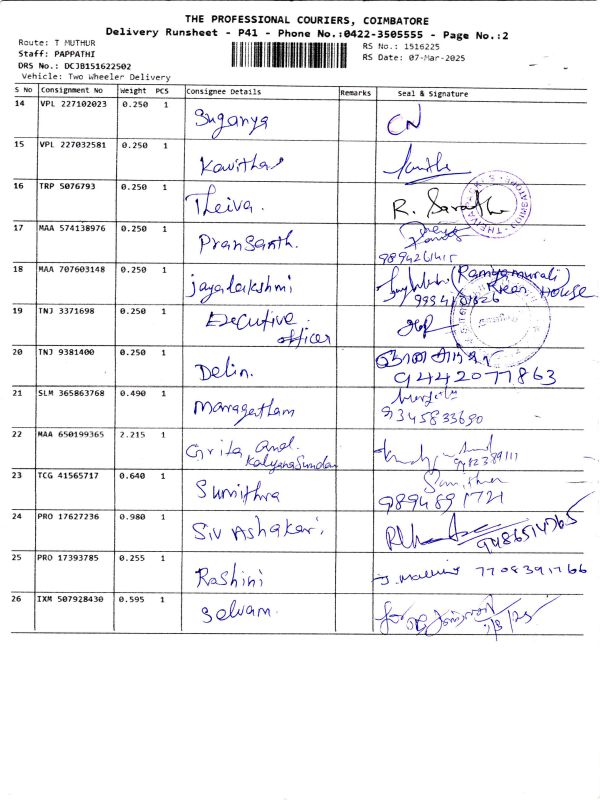 THE PROFESSIONAL COURIERS, COIMBATORE
Delivery Runsheet - P41 - Phone No.:0422-3505555 - Page No.:2
Route: T MUTHUR
RS No.: 1516225
Staff: PAPPATHI
RS Date: 07-Mar-2025
DRS No.: DCJB151622502
Vehicle: Two Wheeler Delivery
S No Consignment No Weight PCS Consignee Details Remarks Seal & Signature
14 VPL 227102023 0.250 1 Suganya CN
15 VPL 227032581 0.250 1 Kavitha
16 TRP 5076793 0.250 1 Theiva. R.
17 MAA 574138976 0.250 1 Pransanth.
9894261415
18 MAA 707603148 0.250 1 jayalakshmi (Ramyamurali)
House
19 TNJ 3371698 0.250 1 Executive
officer
20 TNJ 9381400 0.250 1 Delin.
9442077863
21 SLM 365863768 0.490 1 Maragatham
9345833690
22 MAA 650199365 2.215 1 Grita and.
KalyanaSundar
23 TCG 41565717 0.640 1 Sumithra
9894891721
24 PRO 17627236 0.980 1 Siv Ashakari 9486514765
25 PRO 17393785 0.255 1 Rashini 7708391766
26 IXM 507928430 0.595 1 Selvam.